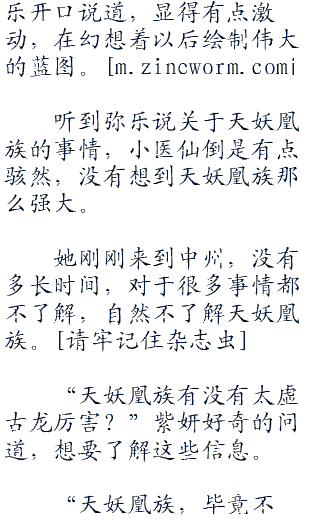 乐开口说道，显得有点激
动，在幻想着以后绘制伟大
的蓝图。[m.zincworm.com]
听到弥乐说关于天妖凰
族的事情，小医仙倒是有点
骇然，没有想到天妖凰族那
么强大。
她刚刚来到中州，没有
多长时间，对于很多事情都
不了解，自然不了解天妖凰
族。[请牢记住杂志虫]
“天妖凰族有没有太虚
古龙厉害？”紫妍好奇的问
道，想要了解这些信息。
“天妖凰族，毕竟不